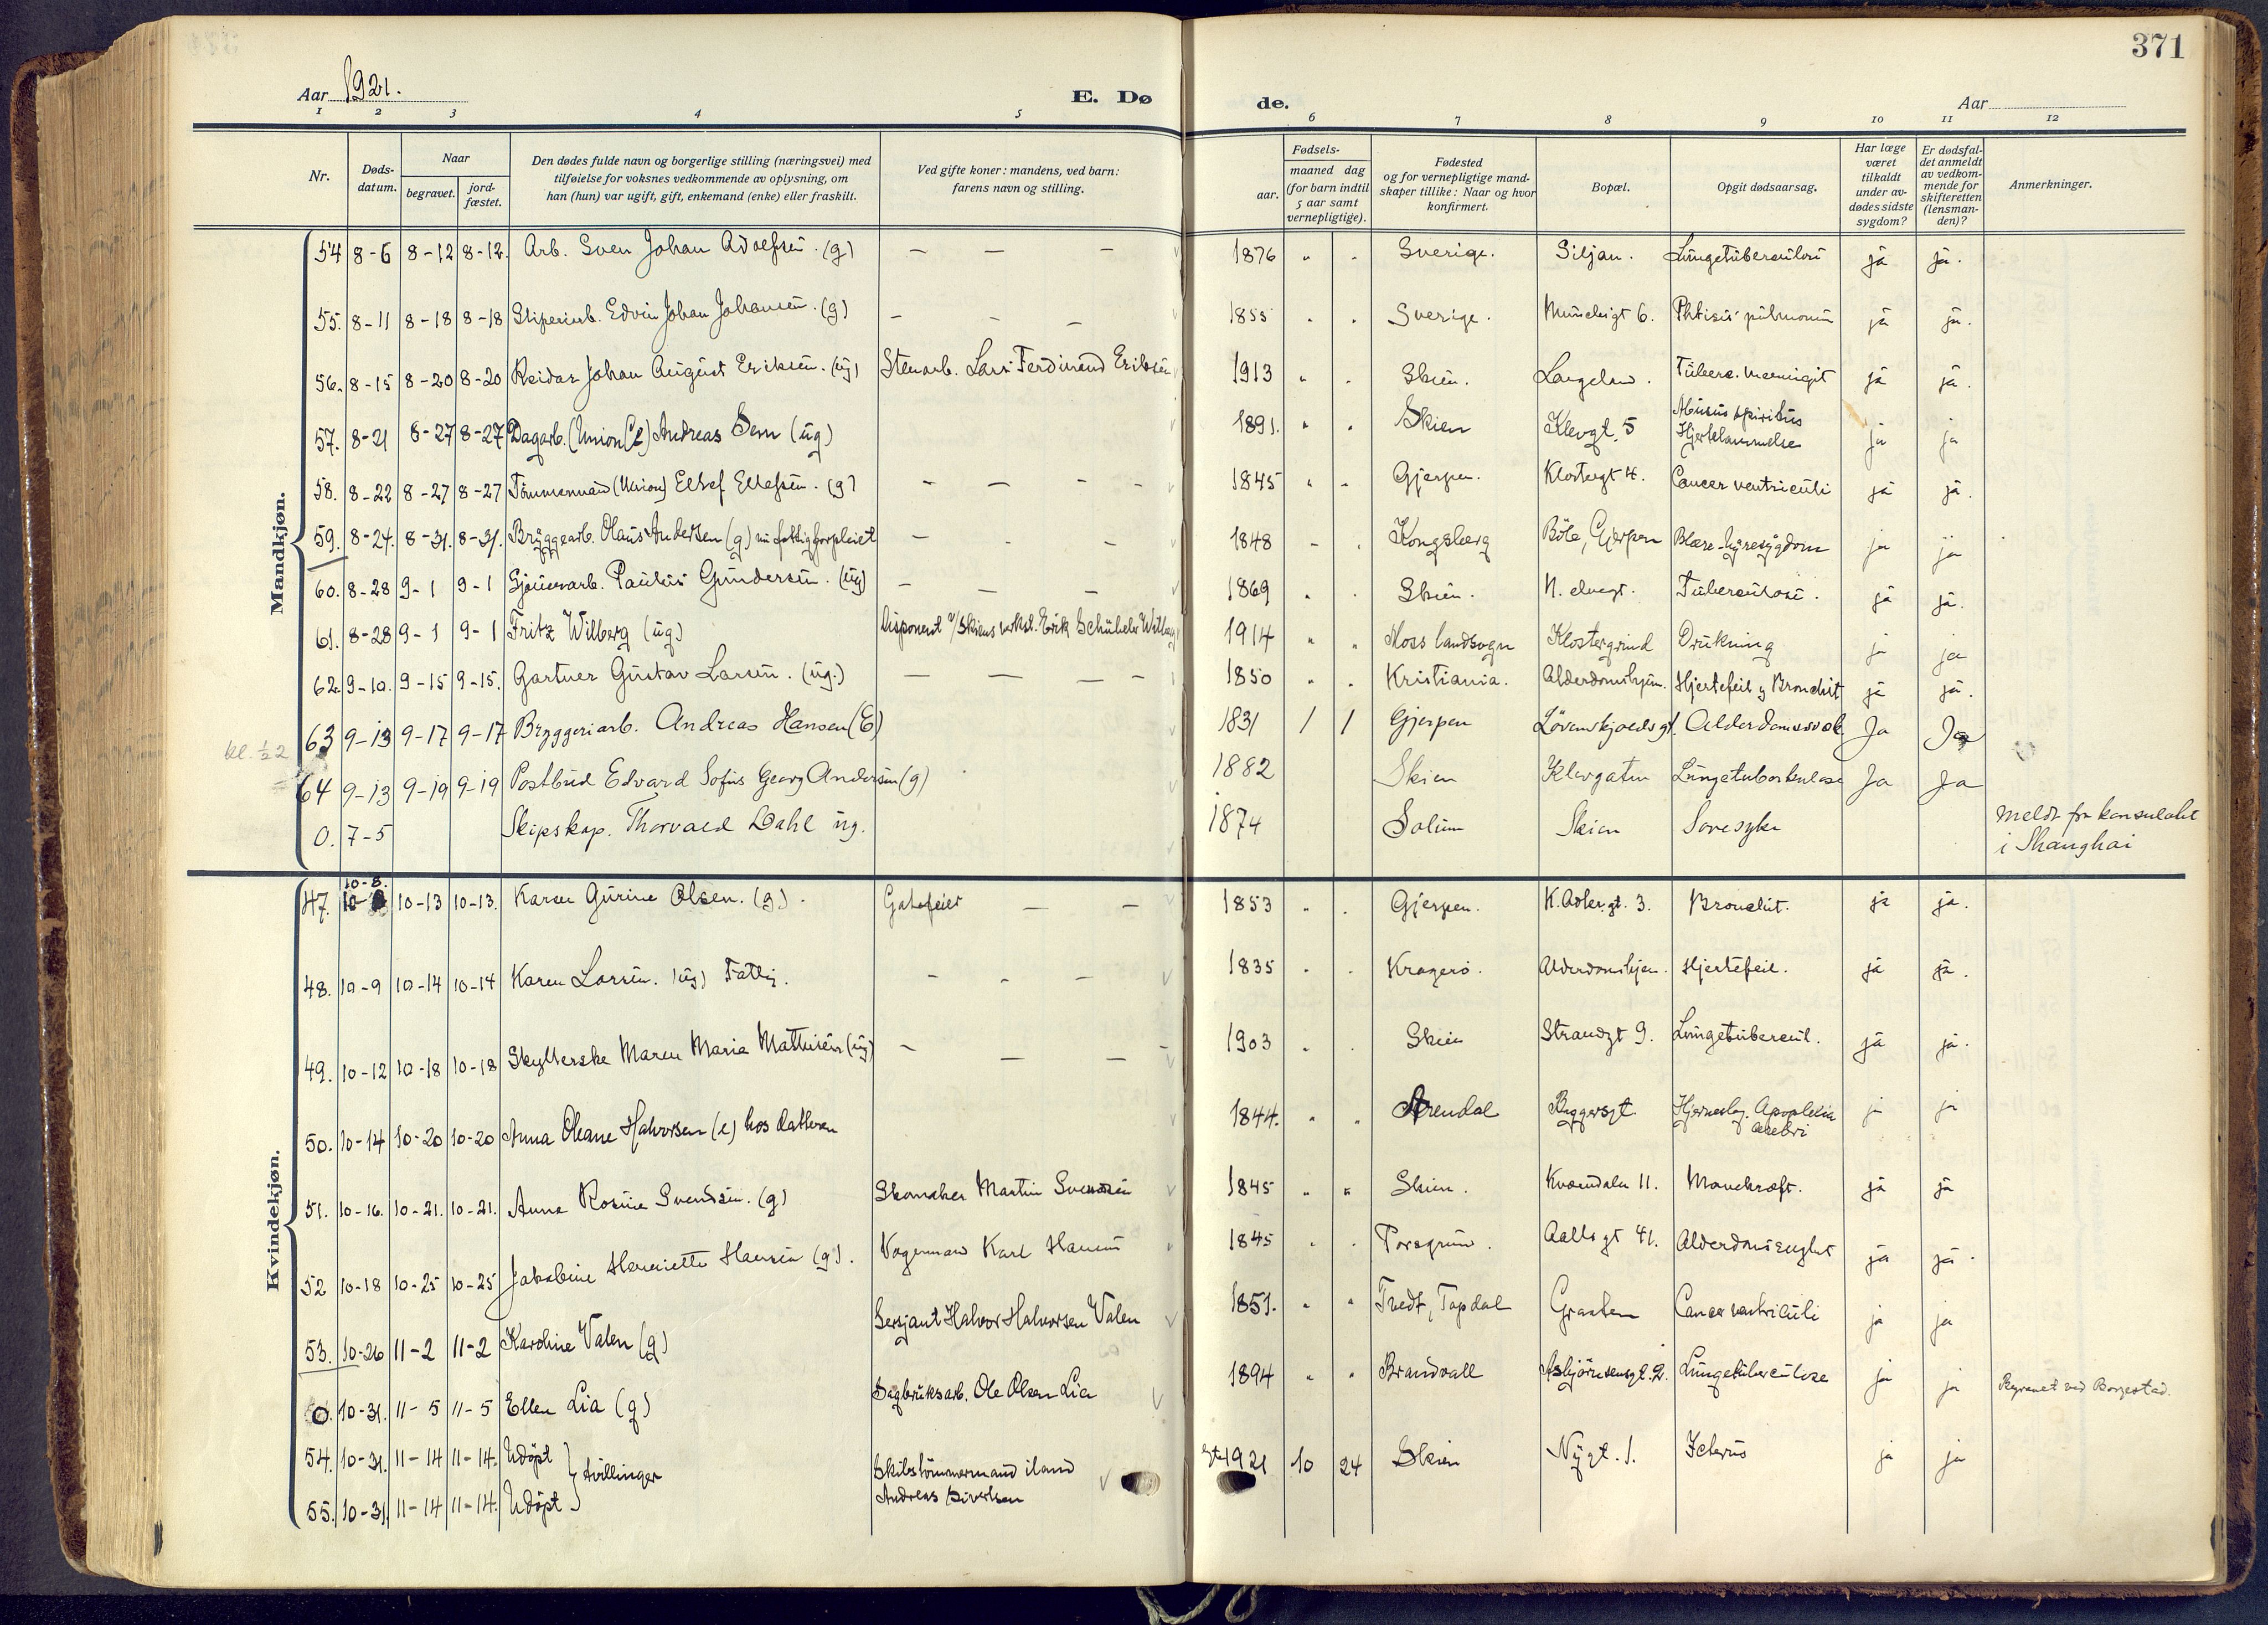 371
Aar 1921.
E. Dø
de.
Aar
1 2 3 4 5 6 7 8 9 10 11 12
Nr.
Døds-
datum.
Naar
begravet.
jord-
fæstet.
Den dødes fulde navn og borgerlige stilling (næringsvei) med
tilføielse for voksnes vedkommende av oplysning, om
han (hun) var ugift, gift, enkemand (enke) eller fraskilt.
Ved gifte koner: mandens, ved barn:
farens navn og stilling.
Fødsels-
aar.
maaned dag
(for barn indtil
5 aar samt
vernepligtige).
Fødested
og for vernepligtige mand-
skaper tillike: Naar og hvor
konfirmert.
Bopæl.
Opgit dødsaarsag.
Har læge
været
tilkaldt
under av-
dødes sidste
sygdom?
Er dødsfal-
det anmeldt
av vedkom-
mende for
skifteretten
(lensman-
den)?
Anmerkninger.
Mandkjøn.
54 8-6 8-12 8-12. Arb. Sven Johan Adolfsen. (g) — — — 1876 " . Sverige. Siljan. Lungetuberculose ja ja.
55. 8-11 8-18 8-18 Sliperiarb. Edvin Johan Johansen. (g) — — — 1855 . . Sverige. 6. Phtisis pulmonum ja ja.
56. 8-15 8-20 8-20 Reidar Johan August Eriksen. (ug) Stenarb. Lars Ferdinand Eriksen 1913 " . Skien. Langeland. Tuberc. meningit ja ja.
57. 8-21 8-27 8-27 Dagarb. (Union Co) Andreas Sem (ug) 1891. " " Skien Klevgt. 5 Abusus spiritus
Hjertelammelse ja ja
58. 8-22 8-27 8-27 Tømmermand (Union) Ellef Ellefsen. (g) — — — — 1845 " " Gjerpen. Klostergt 4. Cancer ventriculi ja ja.
59. 8-24. 8-31. 8-31. Bryggearb. Olaus Andersen (g) nu fattigforpleiet — - - 1848 - . Kongsberg Böle, Gjerpen Blære-Nyresygdom ja ja
60. 8-28 9-1 9-1 Sjouerarb. Paulus Gundersen. (ug) — — — 1869 " . Skien. N. elvegt. Tuberculose. ja ja.
61. 8-28 9-1 9-1 Fritz Wilberg (ug) Disponent v/Skiens verkst. Erik Schübeler Wilberg 1914 " " Moss landsogn Klostergrind Drukning ja ja
62. 9-10. 9-15 9-15. Gartner Gustav Larsen. (ug.) — — — - 1850 " . Kristiania. Alderdomshjem. Hjertefeil og Bronchit ja ja.
kl. ½2
63 9-13 9-17 9-17 Bryggeriarb. Andreas Hansen (E) 1831 / / Gjerpen Løvenskjoldsgt. Alderdomssvak Ja Ja
64 9-13 9-19 9-19 Postbud Edvard Sofus Georg Andersen (g) 1882 Skien Klevgaten Lungetuberkulose Ja Ja
0. 7-5 Skipskap. Thorvald Dahl ug. 1874 Solum Skien Sovesyke meldt fra konsulatet
i Shanghai
Kvindekjøn.
47. 10-8. 10-13 10-13. Karen Gurine Olsen. (g). Gatefeier — — 1853 " . Gjerpen. K. Adlergt. 3. Bronchit. ja ja.
48. 10-9 10-14 10-14 Karen Larsen. (ug) Fattig. — - — 1835 " . Kragerö. Alderdomshjem. Hjertefeil. ja ja.
49. 10-12 10-18 10-18 Maren Maria Mathisen (ug) — — — - 1903 " . Skien Strandgt 9. Lungetubercul. ja ja.
50. 10-14 10-20 10-20 Anna Oleane Halvorsen (e) hos datteren 1844. " " Arendal Bryggersgt. Hjerneslag. Apoplexia
cerebri ja ja
51. 10-16. 10-21. 10-21. Anna Rosine Svendsen. (g) Skomaker Martin Svendsen 1845 " " Skien. Kværndalen 11. Mavekræft. ja ja
52 10-18 10-25 10-25 Jakobine Henriette Hansen (g). Vognmand Karl Hansen 1845 . . Porsgrund. Aallsgt 41. ja ja.
53. 10-26 11-2 11-2 Karoline Valen (g) Sersjant Halvor Halvorsen Valen 1851. " " Tvedt, Topdal Graaten Cancer ventriculi ja ja
0. 10-31. 11-5 11-5 Ellen Lia (g) Sagbruksarb. Ole Olsen Lia 1894 " " Brandvall Asbjörnsensgt. 2. Lungetuberculose ja ja Begravet ved Borgestad.
54. 10-31. 11-14 11-14. Udøpt } tvillinger Skibstömmermand iland 1921 10 24 Skien Nygt. 1. Icterus ja ja
55. 10-31. 11-14 11-14. Udøpt Andreas Sivertsen